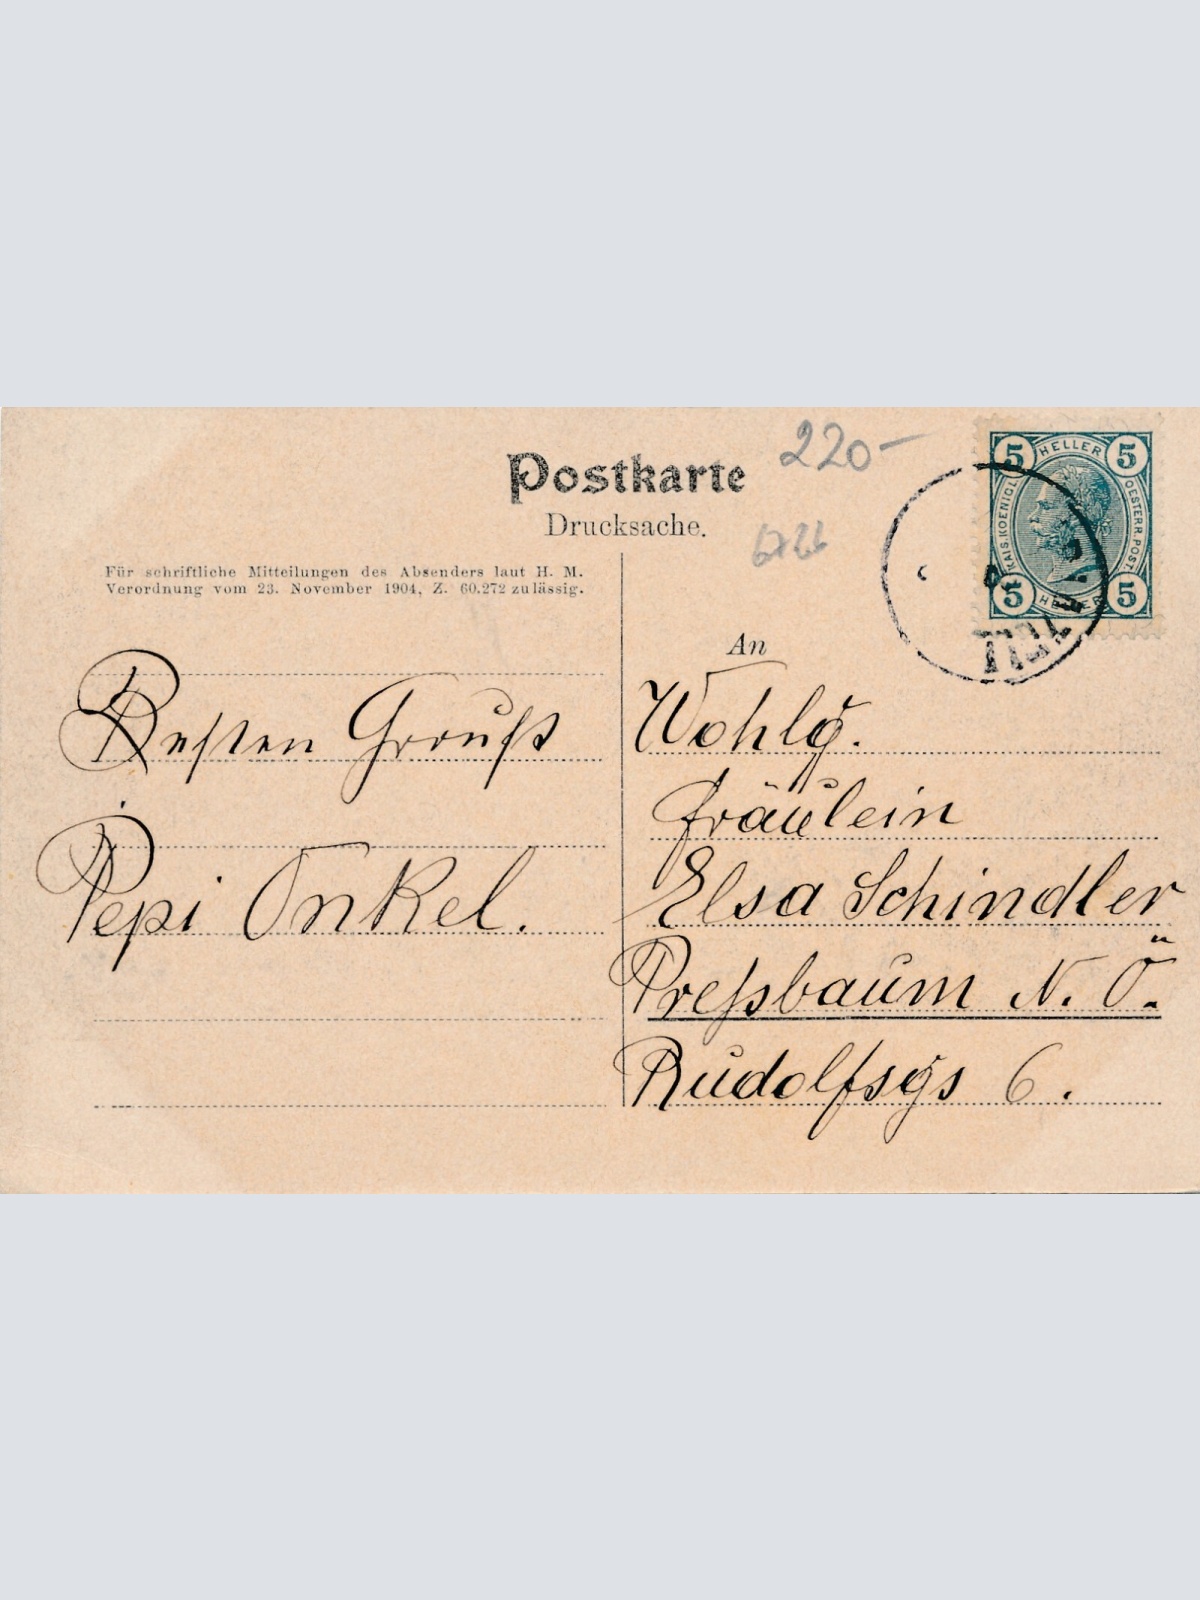 220-
Postkarte
Drucksache.
Für schriftliche Mitteilungen des Absenders laut H. M.
Verordnung vom 23. November 1904, Z. 60.272 zulässig.
5 HELLER 5
KAIS. KOENIGL. OESTERR. POST
5 HELLER 5
An
Besten Gruß
Pepi Onkel.
Wohlg.
Fräulein
Elsa Schindler
Preßbaum N. Ö.
Rudolfsgs 6.